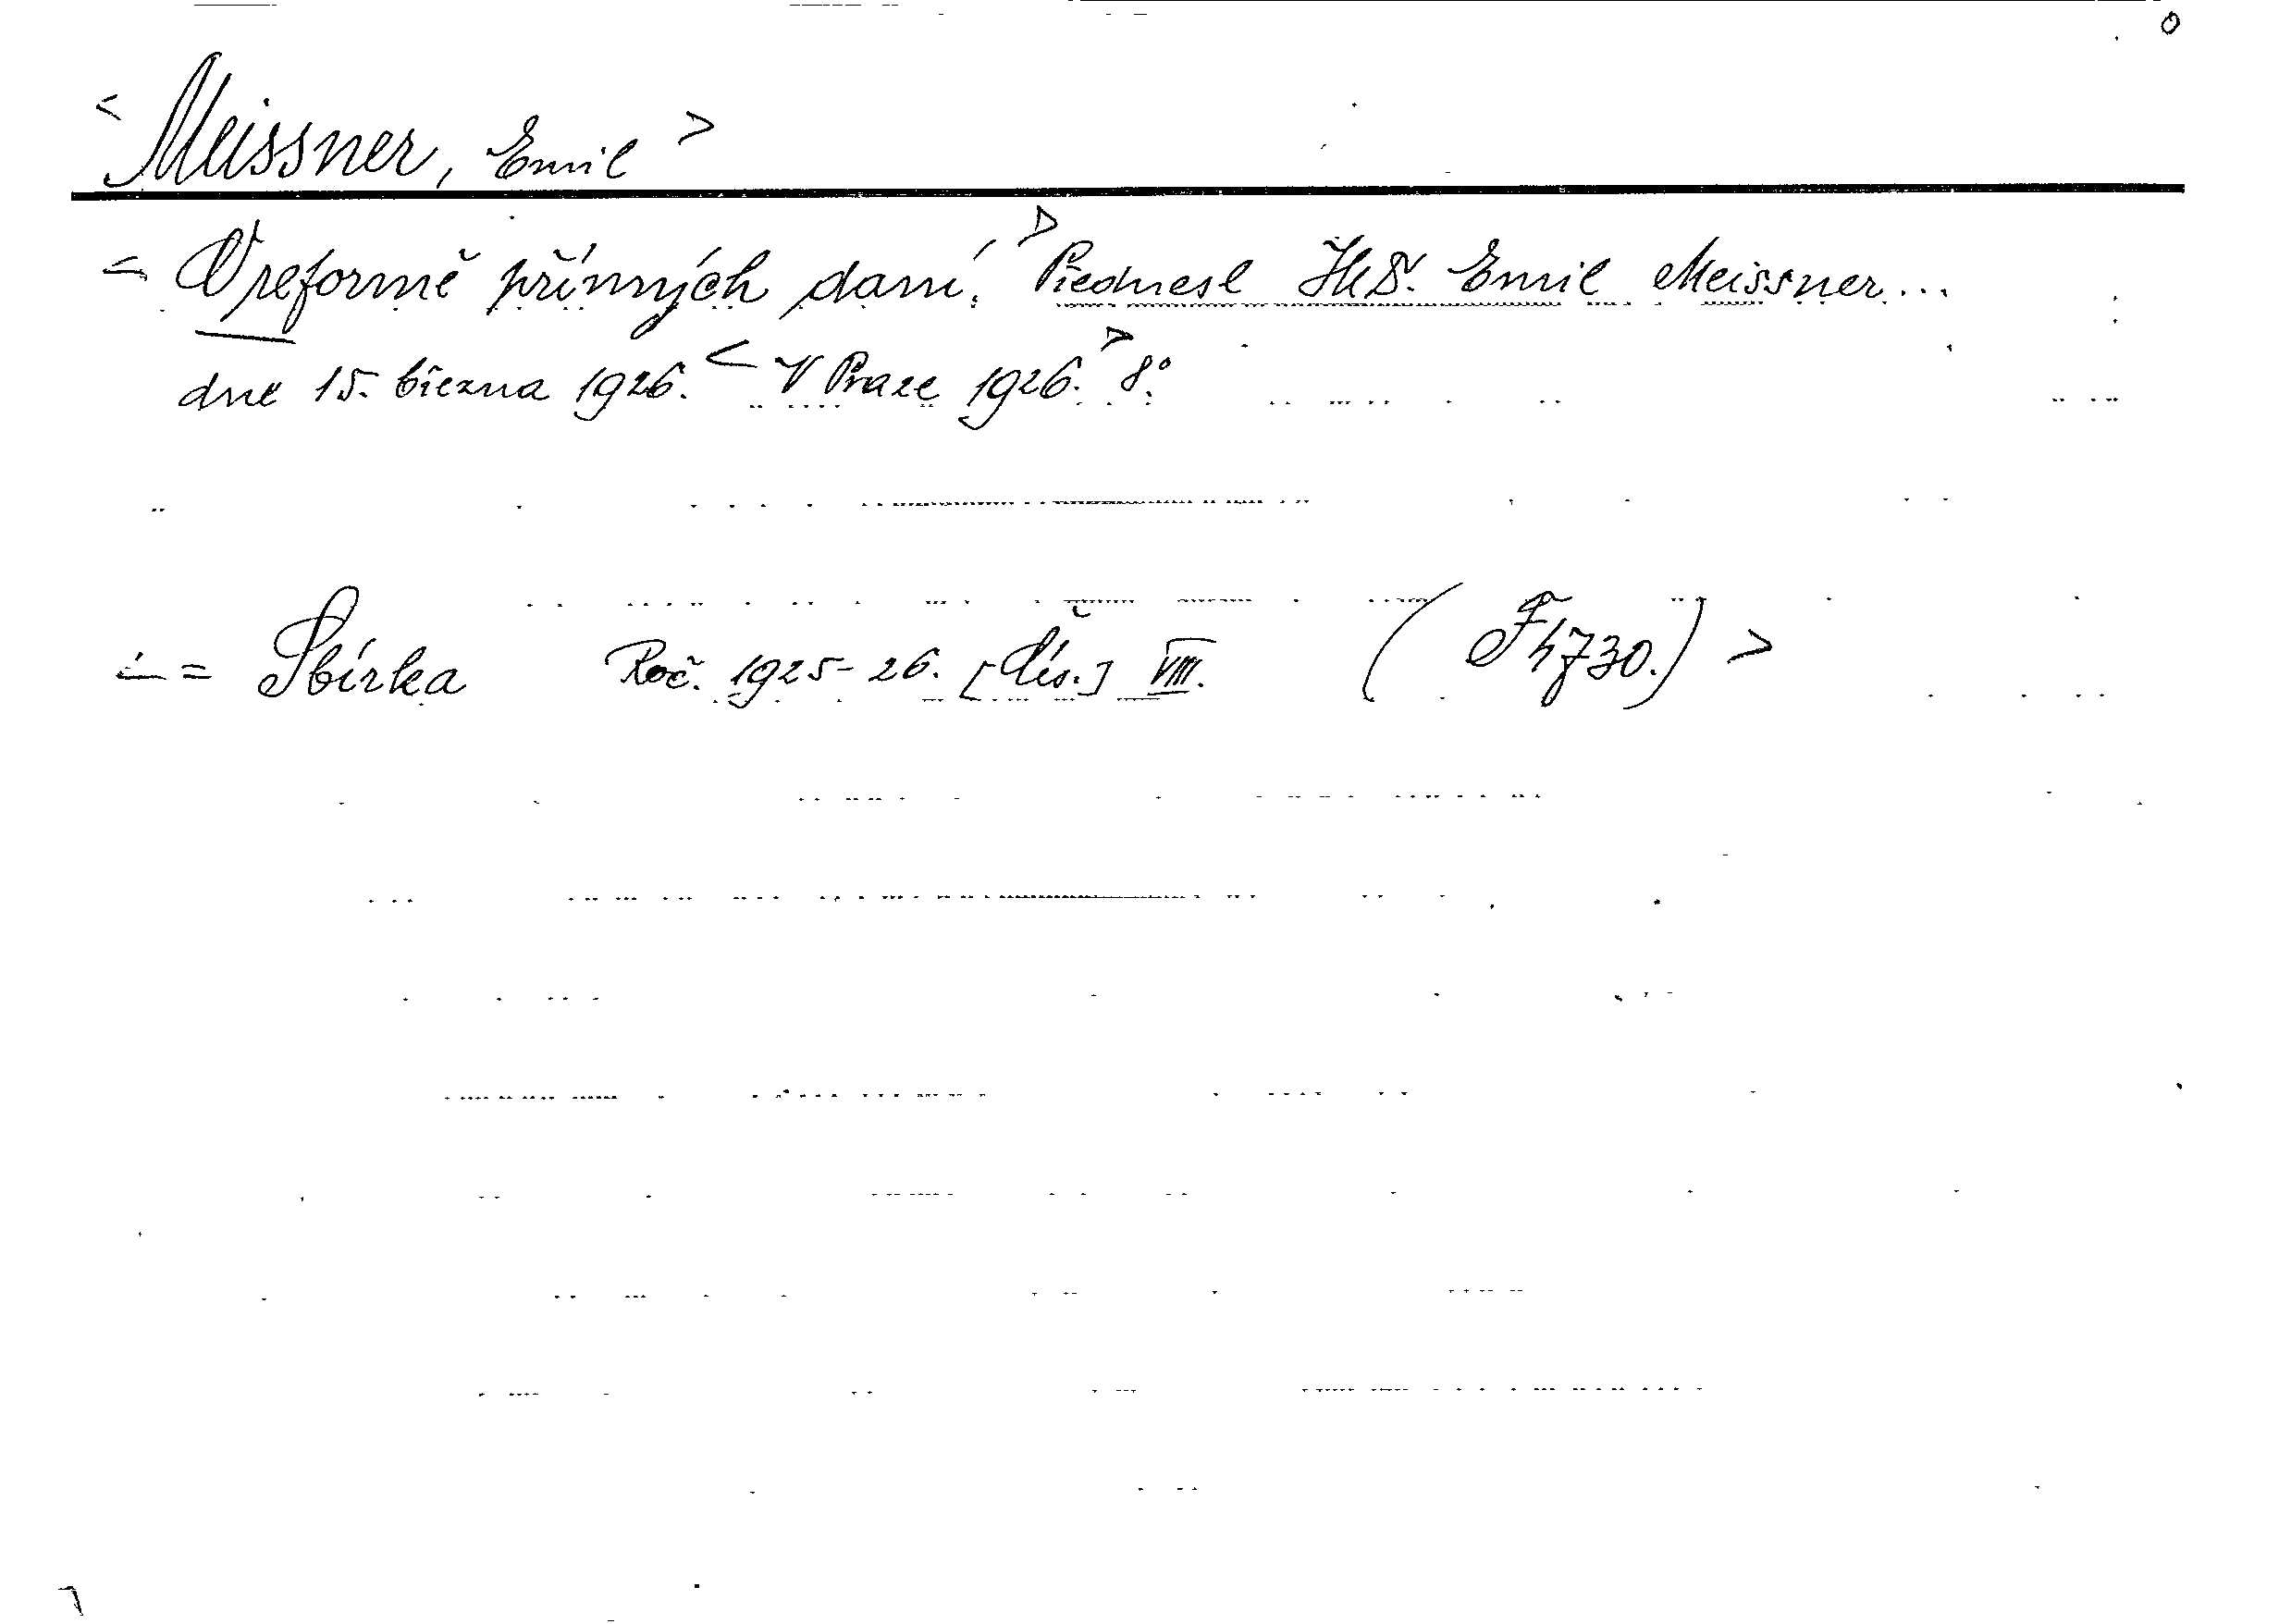 < Meissner, Emil >
< O reformě přímých daní. > Přednesl JUDr. Emil Meissner...
dne 15. března 1926. < V Praze 1926. > 8°.
= Sbírka Roč. 1925-26. [Čís.] VIII. ( F h 730.) >